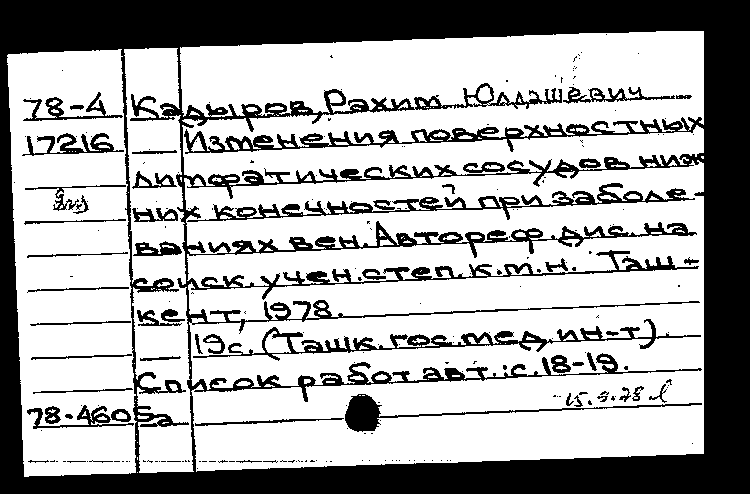 78-4 Кадыров, Рахим Юлдашевич
17216 Изменения поверхностных
лимфатических сосудов ниж
них конечностей при заболе-
ваниях вен. Автореф. дис. на
соиск. учен. степ. к.м.н. Таш-
кент, 1978.
19с. (Ташк. гос. мед. ин-т).
Список работ авт.: с. 18-19.
78-4605а
15.9.78